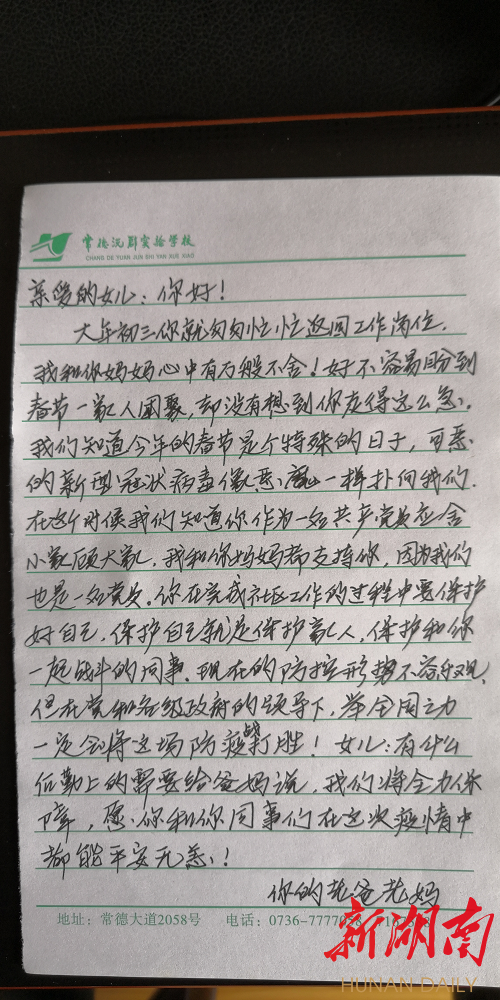 常德沅郡实验学校
CHANG DE YUAN JUN SHI YAN XUE XIAO
亲爱的女儿：你好！
大年初三你就匆匆忙忙返回工作岗位，
我和你妈妈心中有万般不舍！好不容易盼到
春节一家人团聚，却没有想到你走得这么急。
我们知道今年的春节是个特殊的日子，可恶
的新型冠状病毒像恶魔一样扑向我们，
在这个时候我们知道你作为一名共产党员应舍
小家顾大家，我和你妈妈都支持你，因为我们
也是一名党员。你在完成社区工作的过程中要保护
好自己，保护自己就是保护家人，保护和你
一起战斗的同事。现在的防控形势不容乐观，
但在党和各级政府的领导下，举全国之力
一定会将这场防疫战打胜！女儿：有什么
后勤上的需要给爸妈说，我们将全力保
障，愿你和你同事们在这次疫情中
都能平安无恙！
你的老爸老妈
地址：常德大道2058号 电话：0736-7777058
新湖南
HUNAN DAILY